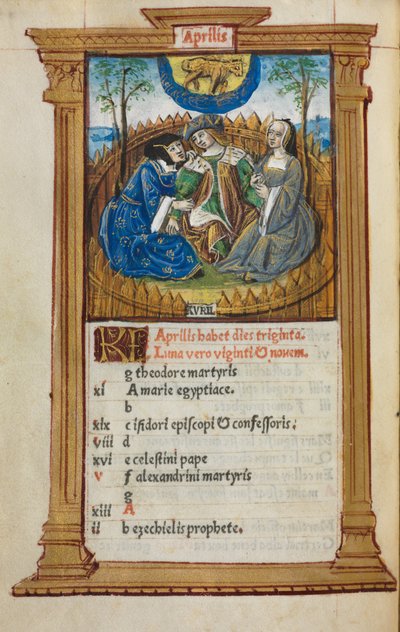 Aprilis
KVRIL
KL Aprilis habet dies triginta.
Luna vero viginti & novem.
g theodore martyris
xi A marie egyptiace.
b
xix c isidori episcopi & confessoris.
viii d
xvi e celestini pape
v f alexandrini martyris
g
xiii A
ii b ezechielis prophete.